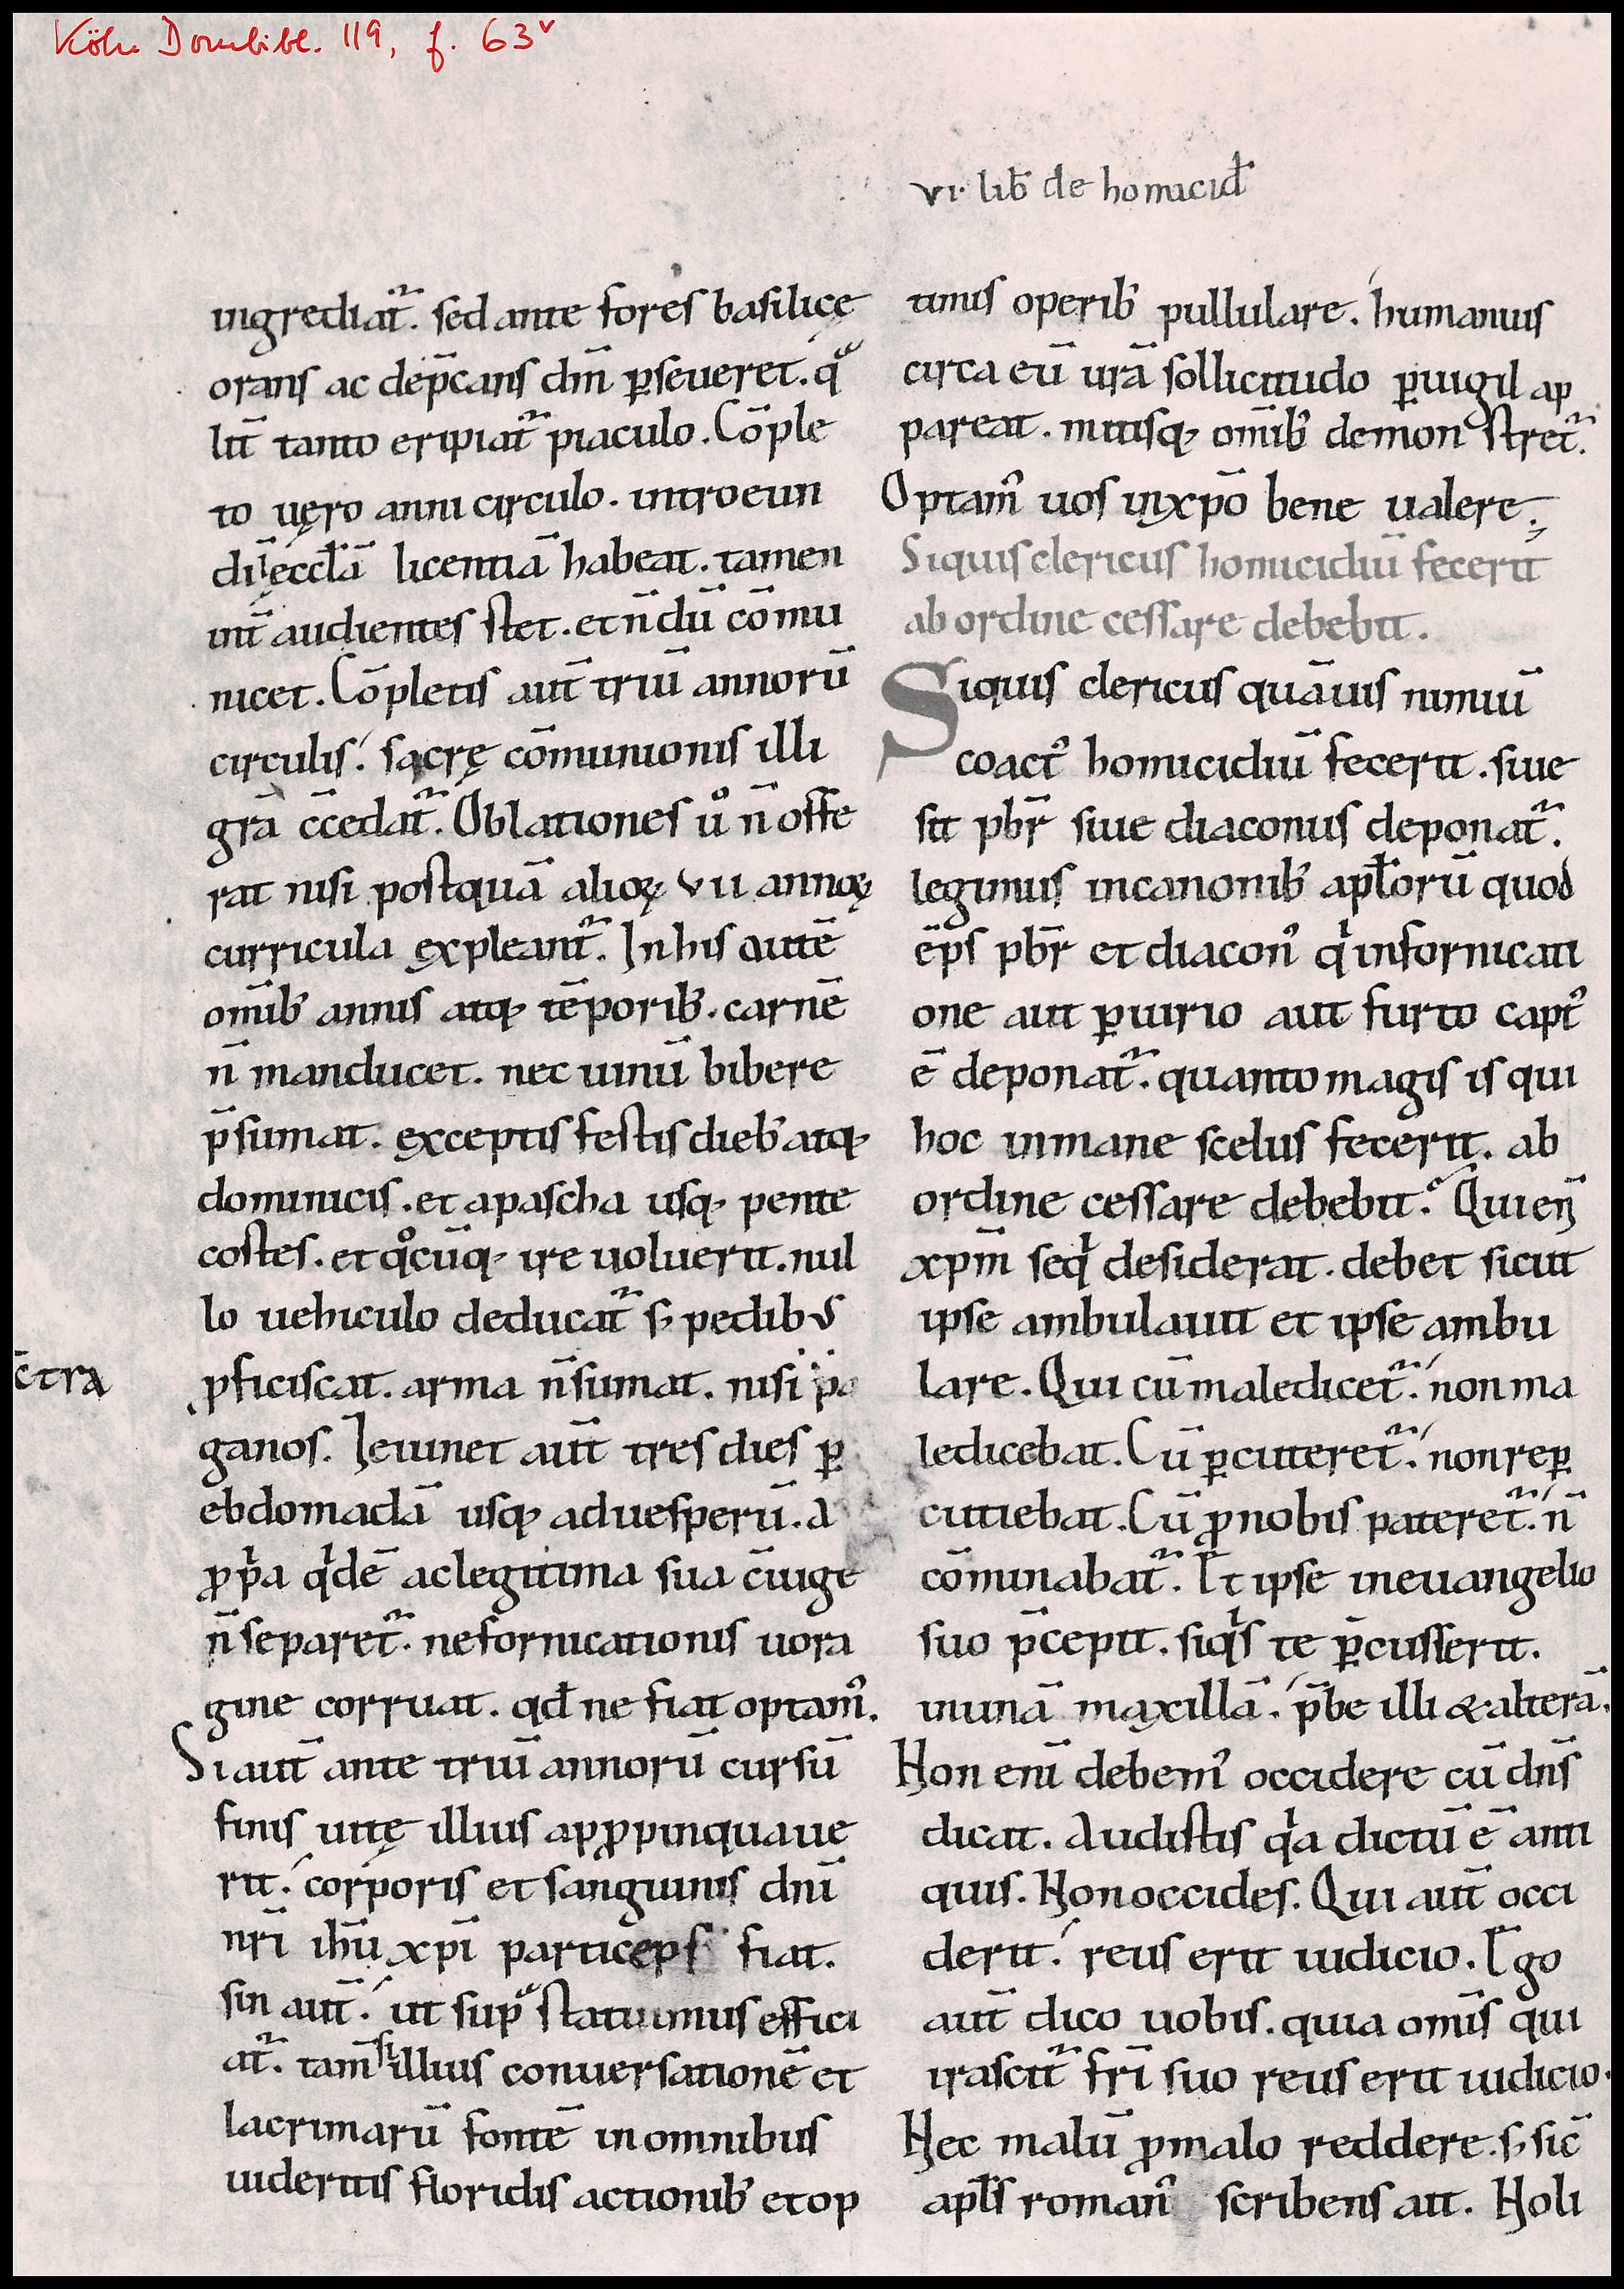 Köln Dombibl. 119, f. 63v
vi. lib̄ de homicid̄
ingrediat᷑. sed ante fores basilicę
orans ac dep̄cans dn̄m ꝑseueret. qͣ
lit̄ tanto eripiat᷑ piaculo. Cō̄ple
to uęro anni circulo. introeun
di ęccl̄ā licentiā habeat. tamen
int̄ audientes stet. et n̄ dū cōmu
nicet. Cōpletis aut̄ triū annorū
circulis. sacrę cōmunionis illi
gr̄a c̄cedat᷑. Oblationes uͦ n̄ offe
rat nisi postquā alioꝝ vii annoꝝ
curricula expleant᷑. In his autē
om̄ib; annis atq; tēporib;. carnē
n̄ manducet. nec uinū bibere
p̄sumat. exceptis festis dieb; atq;
dominicis. et a pascha usq; pente
costes. et qͦcūq; ire uoluerit. nul
lo uehiculo deducat᷑ s; pedibus
ꝓficiscat. arma n̄ sumat. nisi pa
c̄tra
ganos. Ieiunet aut̄ tres dies ꝑ
ebdomadā usq; ad uesperū. A
ꝓpͥa qͥdē ac legitima sua c̄iuge
n̄ separet᷑. ne fornicationis uora
gine corruat. qd̄ ne fiat optamꝰ.
Si aut̄ ante triū annorū cursū
finis uitę illius apꝓpinquaue
rit. corporis et sanguinis dn̄i
nr̄i ihū xp̄i particeps fiat.
sin aut̄. ut supͣ statuimus effici
at᷑. tam̄ si illius conuersationē et
lacrimarū fontē in omnibus
uideritis floridis actionib; et op
timis operib; pullulare. humanius
circa eū ur̄a sollicitudo ꝑuigil ap
pareat. mitisq; om̄ib; demonstret᷑.
Optamꝰ uos in xp̄o bene ualere;
Siquis clericus homicidiū fecerit
ab ordine cessare debebit.
Siquis clericus quāuis nimiū
coactꝰ homicidiū fecerit. siue
sit pb̄r siue diaconus deponat᷑.
legimus in canonib; apl̄orū quod
ēps pb̄r et diaconꝰ qͥ in fornicati
one aut ꝑiurio aut furto captꝰ
ē deponat᷑. quanto magis is qui
hoc inmane scelus fecerit. ab
ordine cessare debebit. Qui eni̅
xp̄m seqͥ desiderat. debet sicut
ipse ambulauit et ipse ambu
lare. Qui cū malediceret᷑. non ma
ledicebat. Cū ꝑcuteret᷑. non reꝑ
cutiebat. Cū ꝓ nobis pateret᷑. n̄
cōminabat᷑. Et ipse in euangelio
suo p̄cepit. siqͥs te ꝑcusserit.
in unā maxillā. p̄be illi & alterā.
Non eni̅ debemꝰ occidere cū dn̄s
dicat. Audistis qͥa dictū ē anti
quis. Non occides. Qui aut̄ occi
derit. reus erit iudicio. Ego
aut̄ dico uobis. quia om̄is qui
irascit᷑ fr̄i suo reus erit iudicio.
Nec malū ꝓ malo reddere. s; sic̄
apl̄s romanꝰ scribens ait. Noli